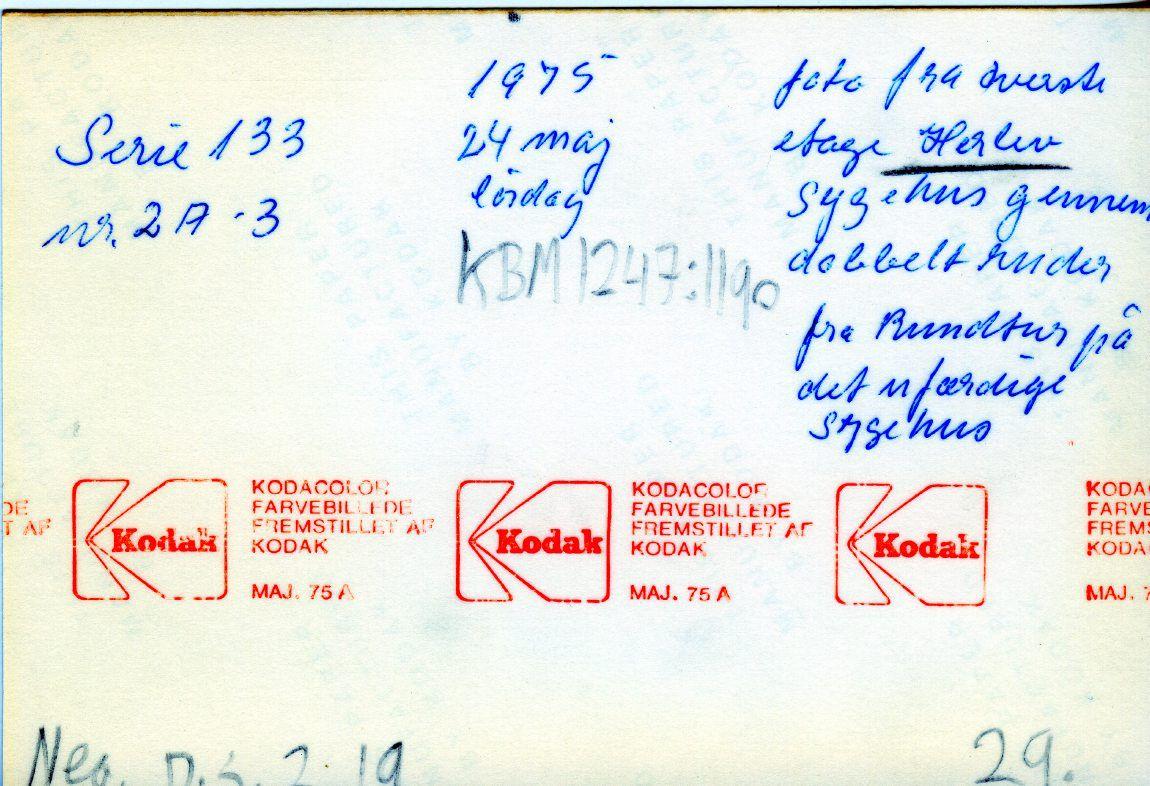 Serie 133
nr. 2A-3
1975
24 maj
lördag
KBM1247:1190
foto fra øverste
etage Herlev
Sygehus gennem
dobbelt ruder
fra Rundtur på
det ufærdige
Sygehus
DE
T AF
Kodak
KODACOLOR
FARVEBILLEDE
FREMSTILLET AF
KODAK
MAJ. 75 A
Kodak
KODACOLOR
FARVEBILLEDE
FREMSTILLET AF
KODAK
MAJ. 75 A
Kodak
KODA
FARVE
FREMS
KODA
MAJ. 7
Neg.
29.